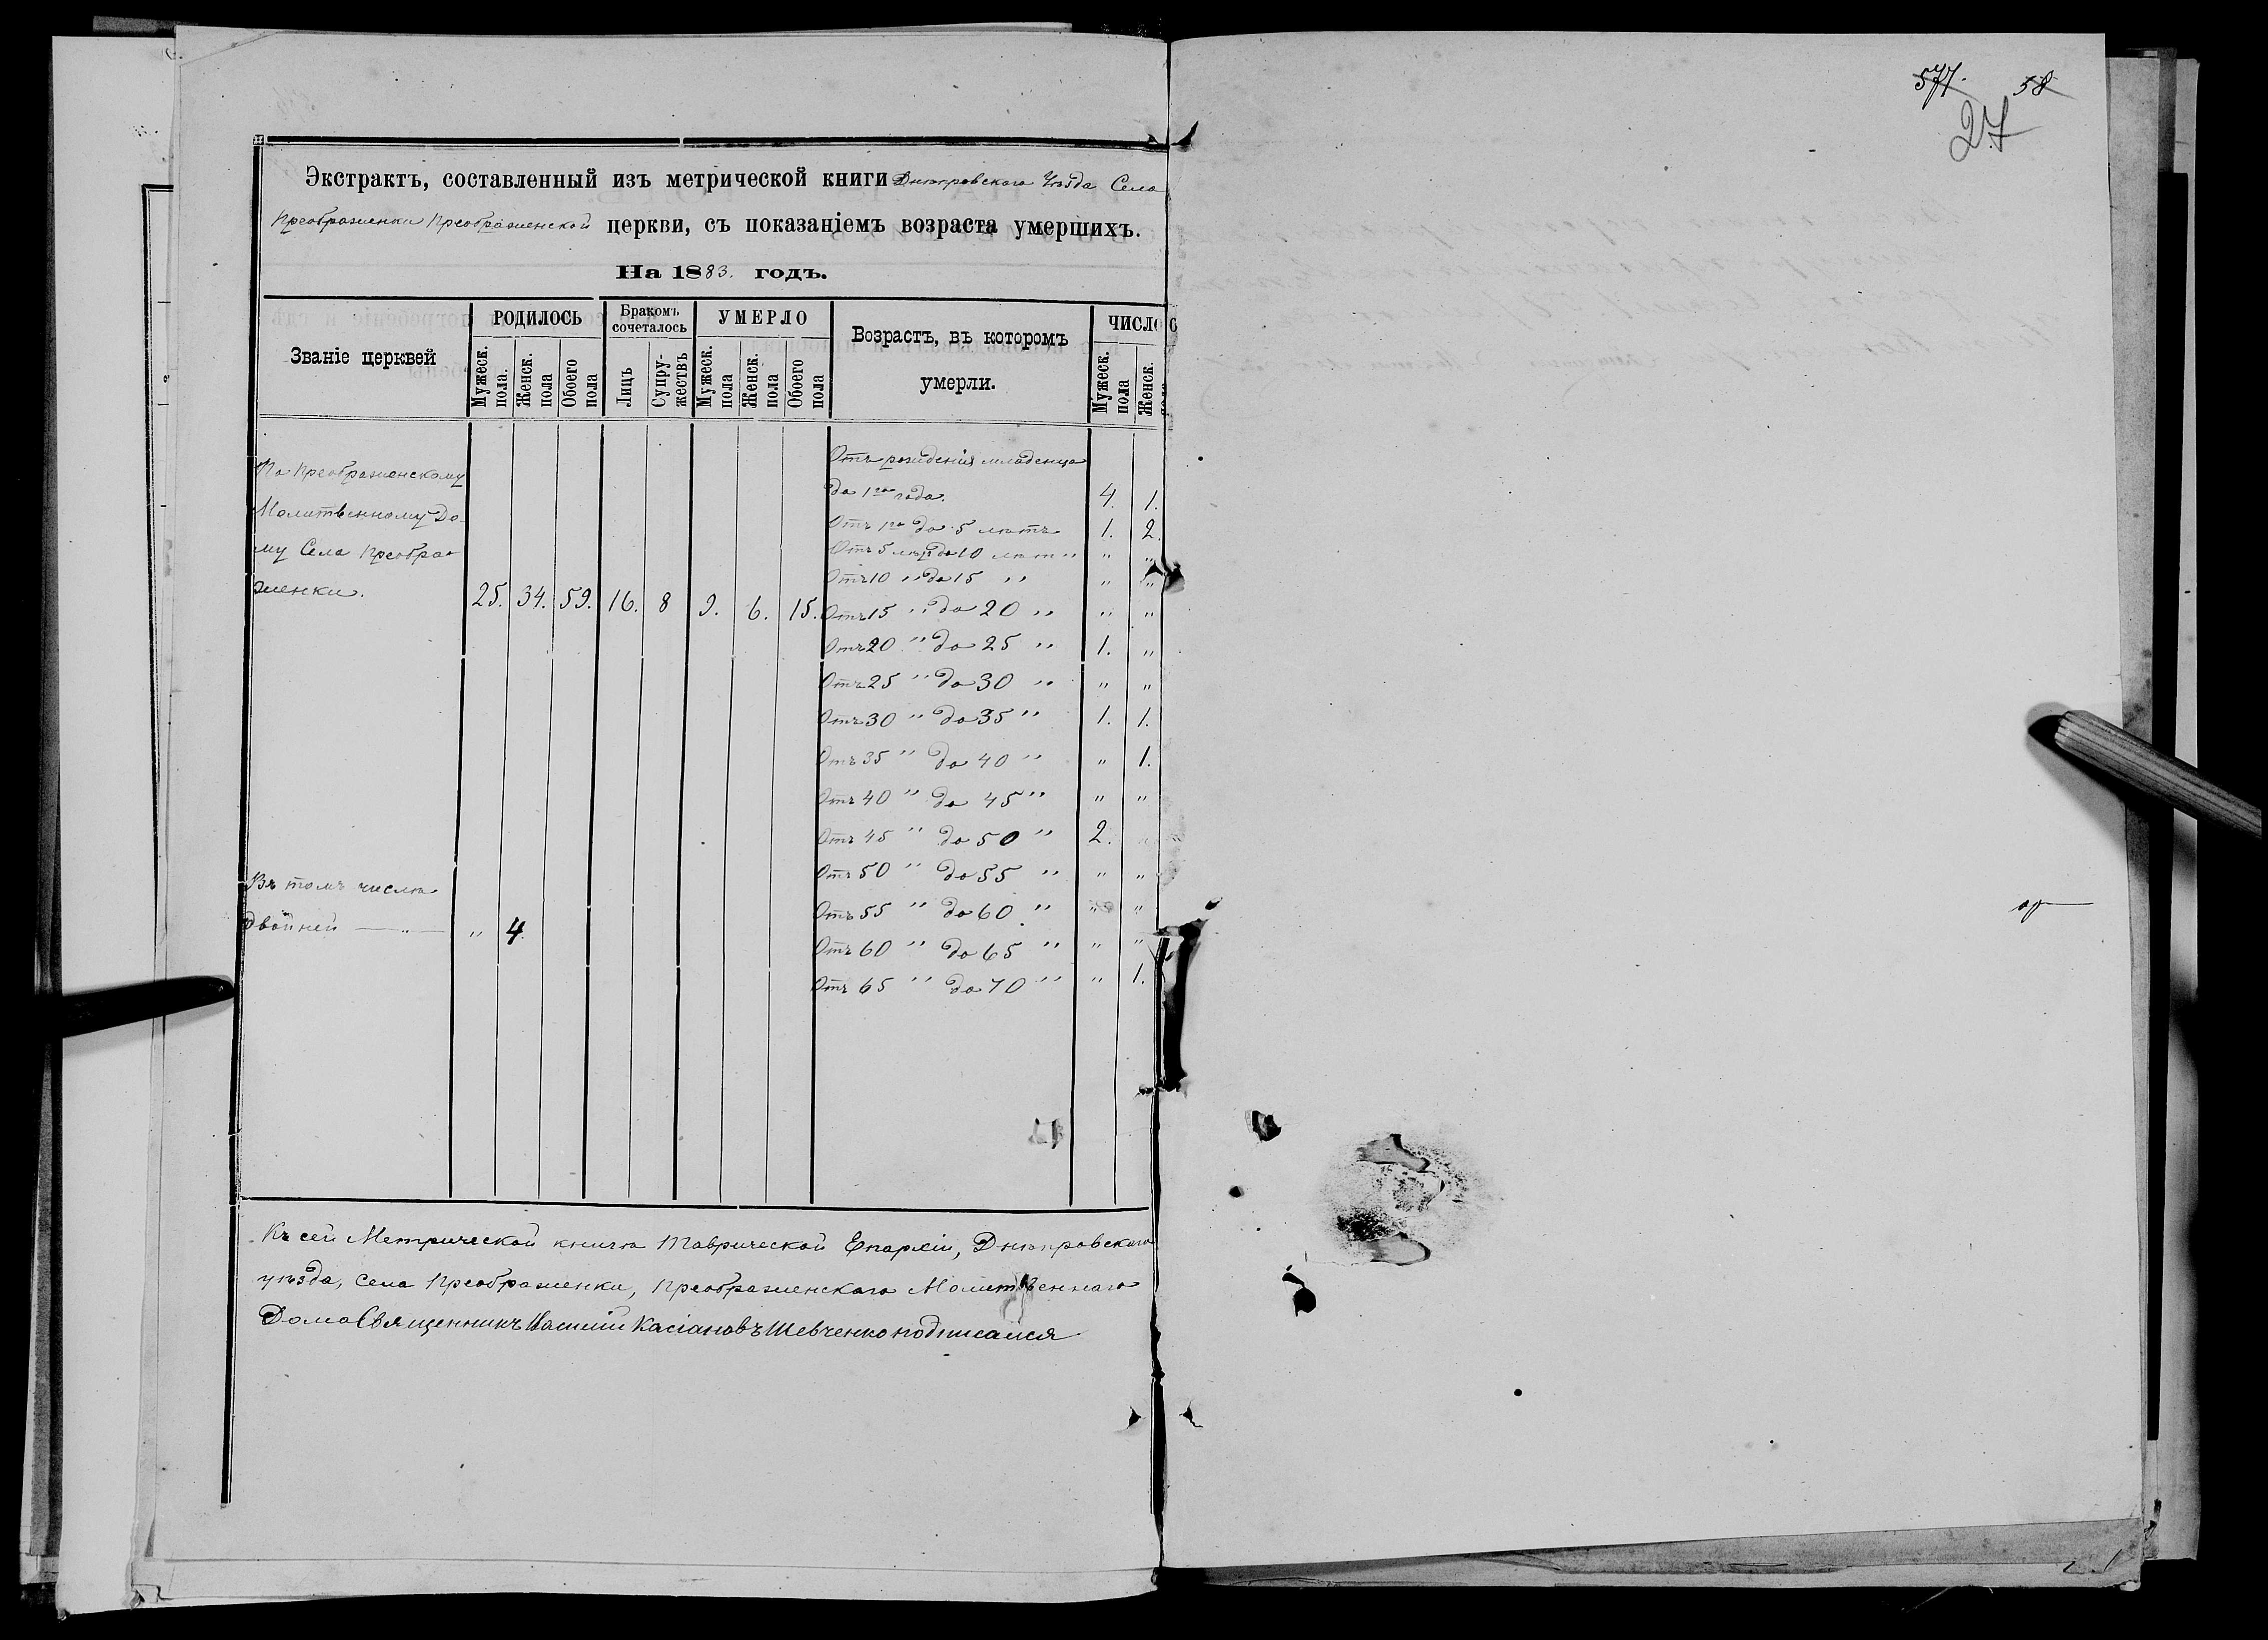 577. 58
27
Экстрактъ, составленный изъ метрической книги Днѣпровскаго Уѣзда Села
Преображенки Преображенской церкви, съ показаніемъ возраста умершихъ.
На 1883. годъ.
Званіе церквей
РОДИЛОСЬ
Бракомъ сочеталось
УМЕРЛО
Возрастъ, въ которомъ умерли.
ЧИСЛО
Мужеск. пола. Женск. пола Обоего пола Лицъ Супружествъ Мужеск. пола Женск. пола Обоего пола Мужеск. пола Женск.
По Преображенскому
Молитвенному До-
му Села Преобра-
женки. 25. 34. 59. 16. 8 9. 6. 15.
Отъ рожденія младенца
до 1го года. 4. 1.
Отъ 1го до 5 лѣтъ 1. 2.
Отъ 5 лѣтъ до 10 лѣтъ " "
Отъ 10 " до 15 " " "
Отъ 15 " до 20 " " "
Отъ 20 " до 25 " 1. "
Отъ 25 " до 30 " " "
Отъ 30 " до 35 " 1. 1.
Отъ 35 " до 40 " " 1.
Отъ 40 " до 45 " " "
Отъ 45 " до 50 " 2. "
Отъ 50 " до 55 " " "
Отъ 55 " до 60 " " "
Отъ 60 " до 65 " " "
Отъ 65 " до 70 " " 1.
Въ томъ числѣ
двойней — " — " 4.
Къ сей Метрической книгѣ Таврической Епархіи, Днѣпровскаго
уѣзда, села Преображенки, Преображенскаго Молитвеннаго
Дома Священникъ Василій Касіановъ Шевченко подписался